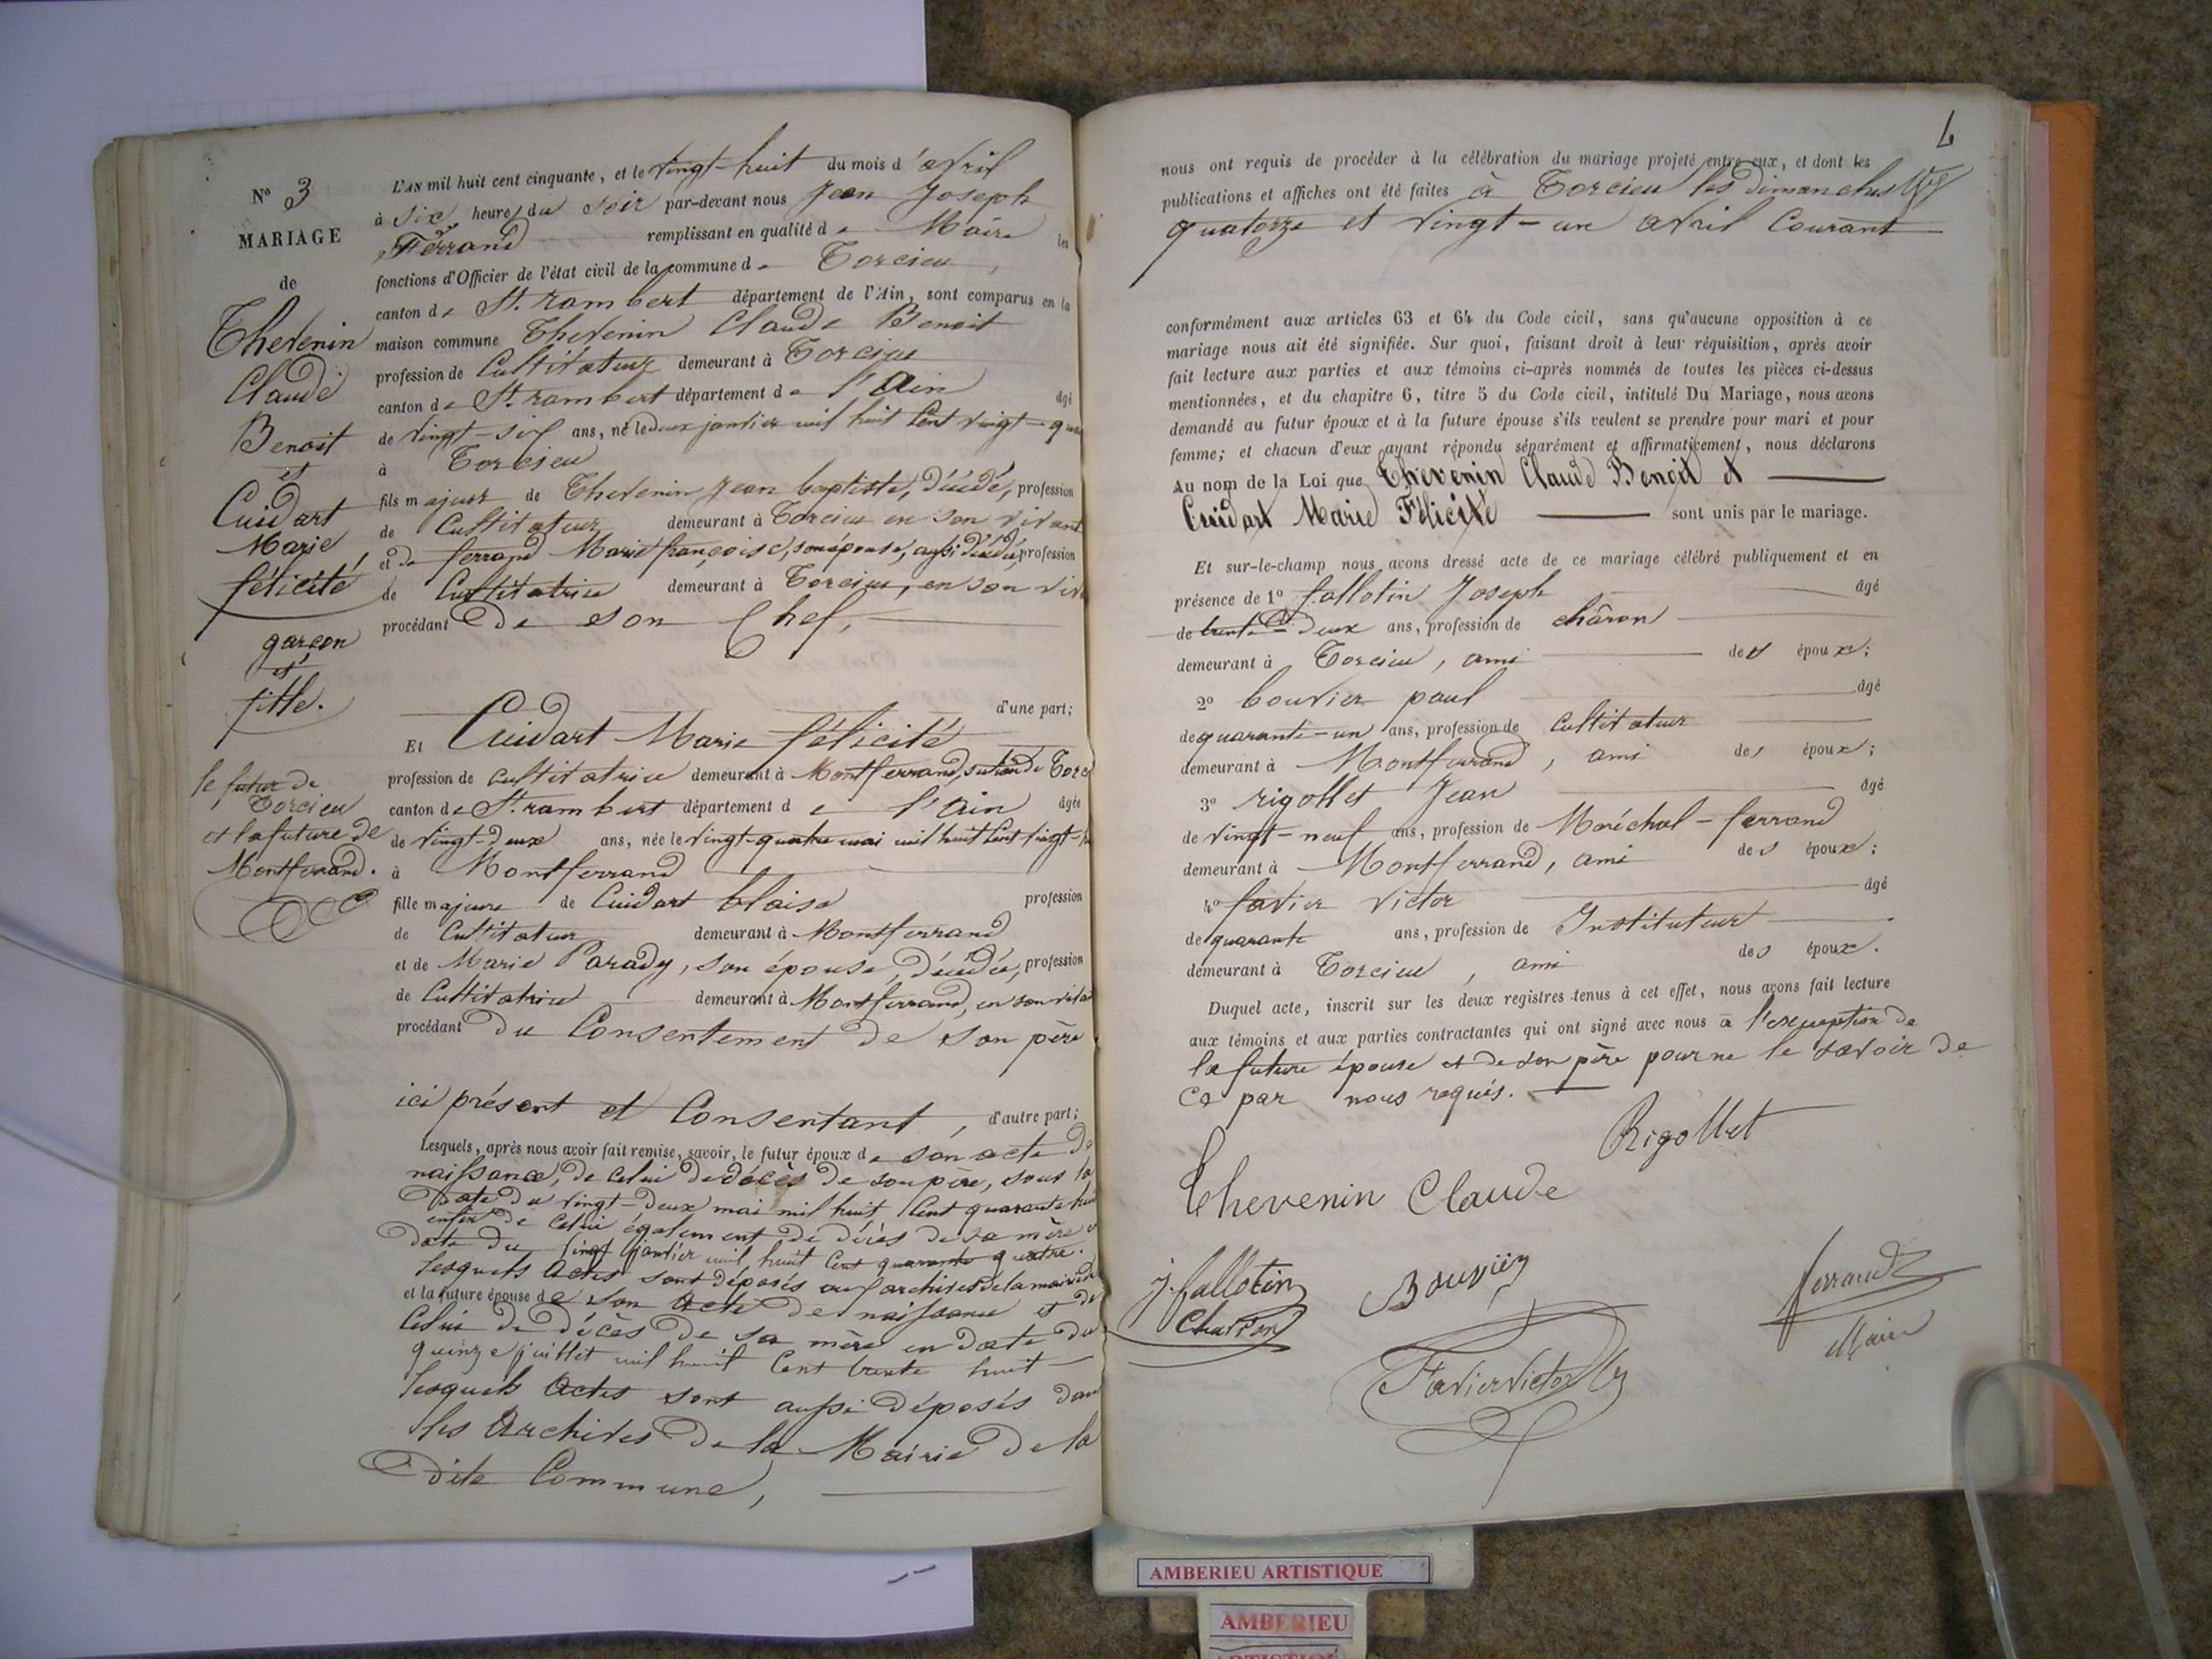 N° 3
MARIAGE
de
Thevenin
Claude
Benoit
et
Cuidart
Marie
félicité
garçon
et
fille.
le futur de
Torcieu
et la future de
Montferrand.
L'AN mil huit cent cinquante, et le vingt-huit du mois d'avril
à six heures du soir par-devant nous Jean Joseph
Ferrand remplissant en qualité de Maire les
fonctions d'Officier de l'état civil de la commune de Torcieu,
canton de St. rambert département de l'Ain, sont comparus en la
maison commune Thevenin Claude Benoit
profession de Cultivateur demeurant à Torcieu
canton de St. rambert département de l'Ain âgé
de vingt-six ans, né le deux janvier mil huit Cent vingt-qua
à Torcieu
fils majeur de Thevenin Jean baptiste, décédé, profession
de Cultivateur demeurant à Torcieu en son vivant
et de ferrand Marie françoise, son épouse, aussi décédée, profession
de Cultivatrice demeurant à Torcieu, en son viv
procédant de son Chef,
d'une part;
Et Cuidart Marie félicité
profession de cultivatrice demeurant à Montferrand, section de Torc
canton de St. rambert département de l'Ain âgée
de vingt-deux ans, née le vingt-quatre mai mil huit Cent vingt-
à Montferrand
fille majeure de Cuidart blaise profession
de Cultivateur demeurant à Montferrand
et de Marie Parady, son épouse, décédée, profession
de Cultivatrice demeurant à Montferrand, en son viva
procédant du Consentement de son père
ici présent et Consentant, d'autre part;
Lesquels, après nous avoir fait remise, savoir, le futur époux de son acte de
naissance, de celui de décès de son père, sous la
date du vingt-deux mai mil huit Cent quarante huit
enfin de Celui également de décès de sa mère en
date du vingt janvier mil huit Cent quarante quatre.
lesquels Actes sont déposés aux archives de la mairie de
et la future épouse de son Acte de naissance et de
Celui de décès de sa mère en date du
quinze juillet mil huit Cent trente huit
lesquels Actes sont aussi déposés dans
les Archives de la Mairie de la
dite Commune,
nous ont requis de procéder à la célébration du mariage projeté entre eux, et dont les
publications et affiches ont été faites à Torcieu les dimanches
quatorze et vingt-un avril Courant
conformément aux articles 63 et 64 du Code civil, sans qu'aucune opposition à ce
mariage nous ait été signifiée. Sur quoi, faisant droit à leur réquisition, après avoir
fait lecture aux parties et aux témoins ci-après nommés de toutes les pièces ci-dessus
mentionnées, et du chapitre 6, titre 5 du Code civil, intitulé Du Mariage, nous avons
demandé au futur époux et à la future épouse s'ils veulent se prendre pour mari et pour
femme; et chacun d'eux ayant répondu séparément et affirmativement, nous déclarons
Au nom de la Loi que Thevenin Claude Benoit et
Cuidart Marie Félicité sont unis par le mariage.
Et sur-le-champ nous avons dressé acte de ce mariage célébré publiquement et en
présence de 1° fallotin Joseph âgé
de trente deux ans, profession de châron
demeurant à Torcieu, ami des époux;
2° bouvier paul âgé
de quarante-un ans, profession de Cultivateur
demeurant à Montferrand, ami des époux;
3° rigollet Jean âgé
de vingt-neuf ans, profession de Maréchal-ferrand
demeurant à Montferrand, ami des époux;
4° favier victor âgé
de quarante ans, profession de Instituteur
demeurant à Torcieu, ami des époux.
Duquel acte, inscrit sur les deux registres tenus à cet effet, nous avons fait lecture
aux témoins et aux parties contractantes qui ont signé avec nous à l'exception de
la future épouse et de son père pour ne le savoir de
ce par nous requis.
Rigollet
Thevenin Claude
j. fallotin
Charron
Bouvier
ferrand
Maire
Favier victor
AMBERIEU ARTISTIQUE
AMBERIEU
ARTISTIQUE